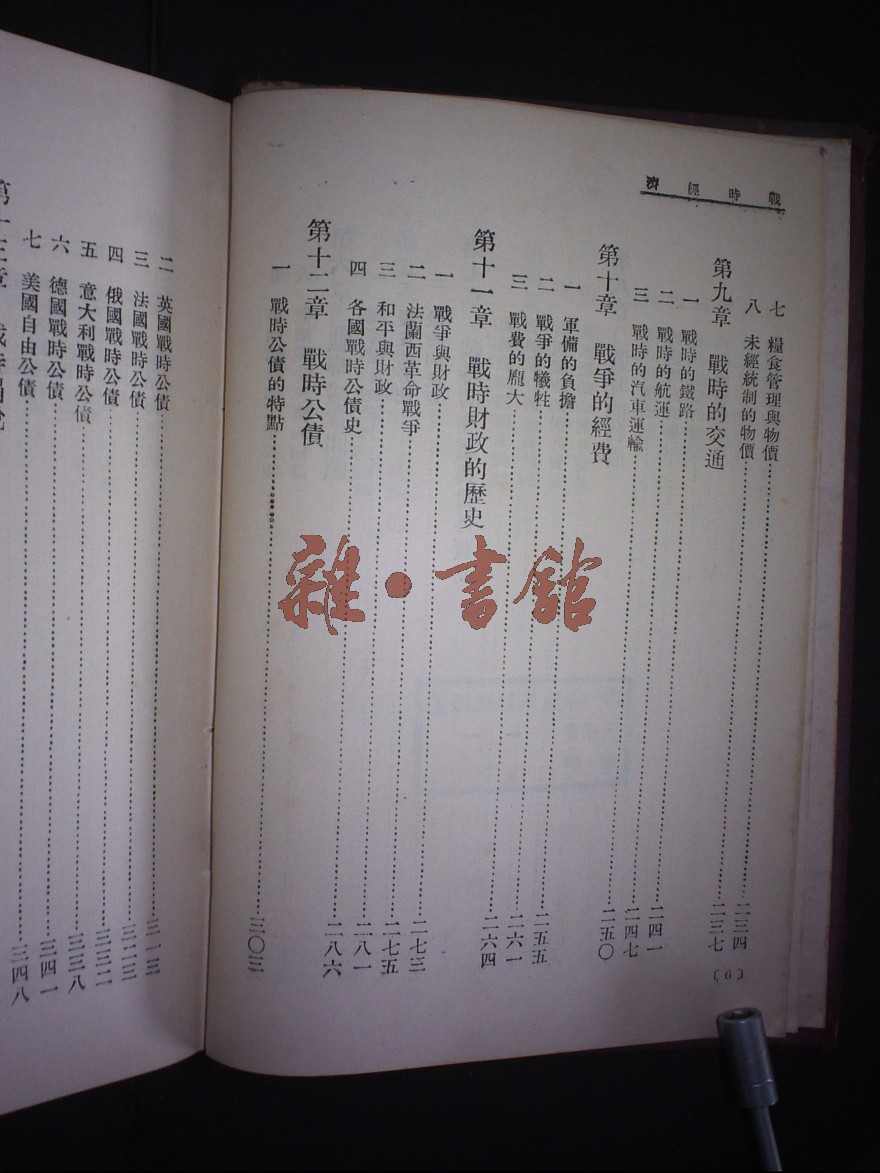 戰時經濟
七 糧食管理與物價……二三四
八 未經統制的物價……二三七
第九章 戰時的交通
一 戰時的鐵路……二四一
二 戰時的航運……二四七
三 戰時的汽車運輸……二五〇
第十章 戰爭的經費
一 軍備的負擔……二五五
二 戰爭的犧牲……二六一
三 戰費的龐大……二六四
第十一章 戰時財政的歷史
一 戰爭與財政……二七三
二 法蘭西革命戰爭……二七五
三 和平與財政……二八一
四 各國戰時公債史……二八六
第十二章 戰時公債
一 戰時公債的特點……三〇三
〔6〕
二 英國戰時公債……三一三
三 法國戰時公債……三二三
四 俄國戰時公債……三三二
五 意大利戰時公債……三三八
六 德國戰時公債……三四一
七 美國自由公債……三四八
第十三章
雜·書館